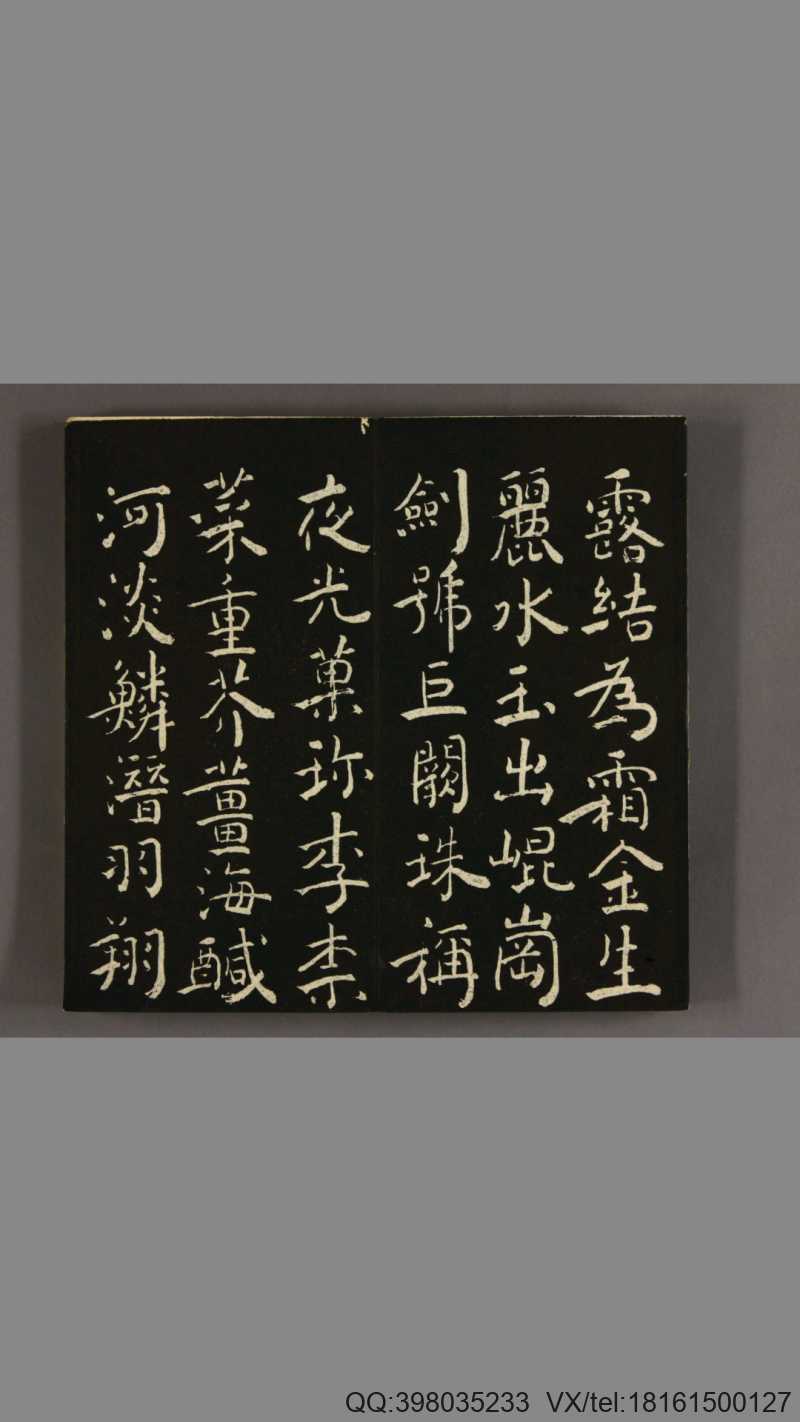 露結為霜金生
麗水玉出崐崗
劍號巨闕珠稱
夜光菓珎李柰
菜重芥薑海醎
河淡鱗潛羽翔
QQ:398035233 VX/tel:18161500127